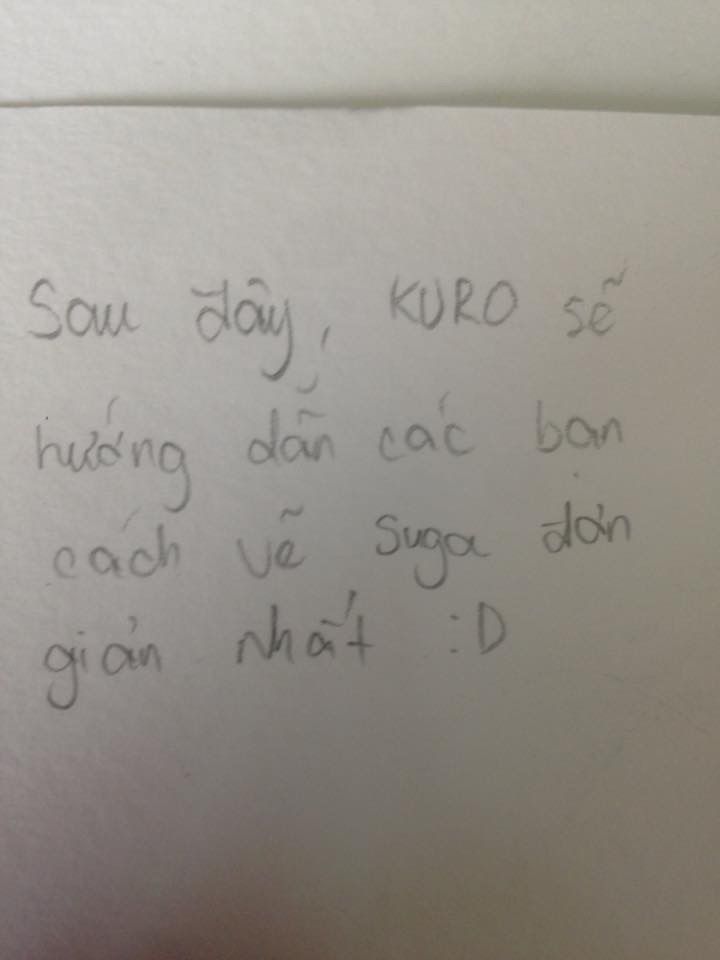 Sau đây, KURO sẽ
hướng dẫn các bạn
cách vẽ suga đơn
giản nhất :D